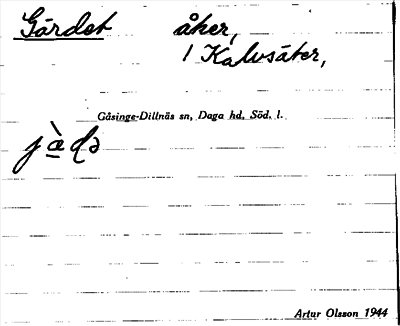 Gärdet åker,
1 Kalvsäter,
Gåsinge-Dillnäs sn, Daga hd, Söd. l.
Artur Olsson 1944